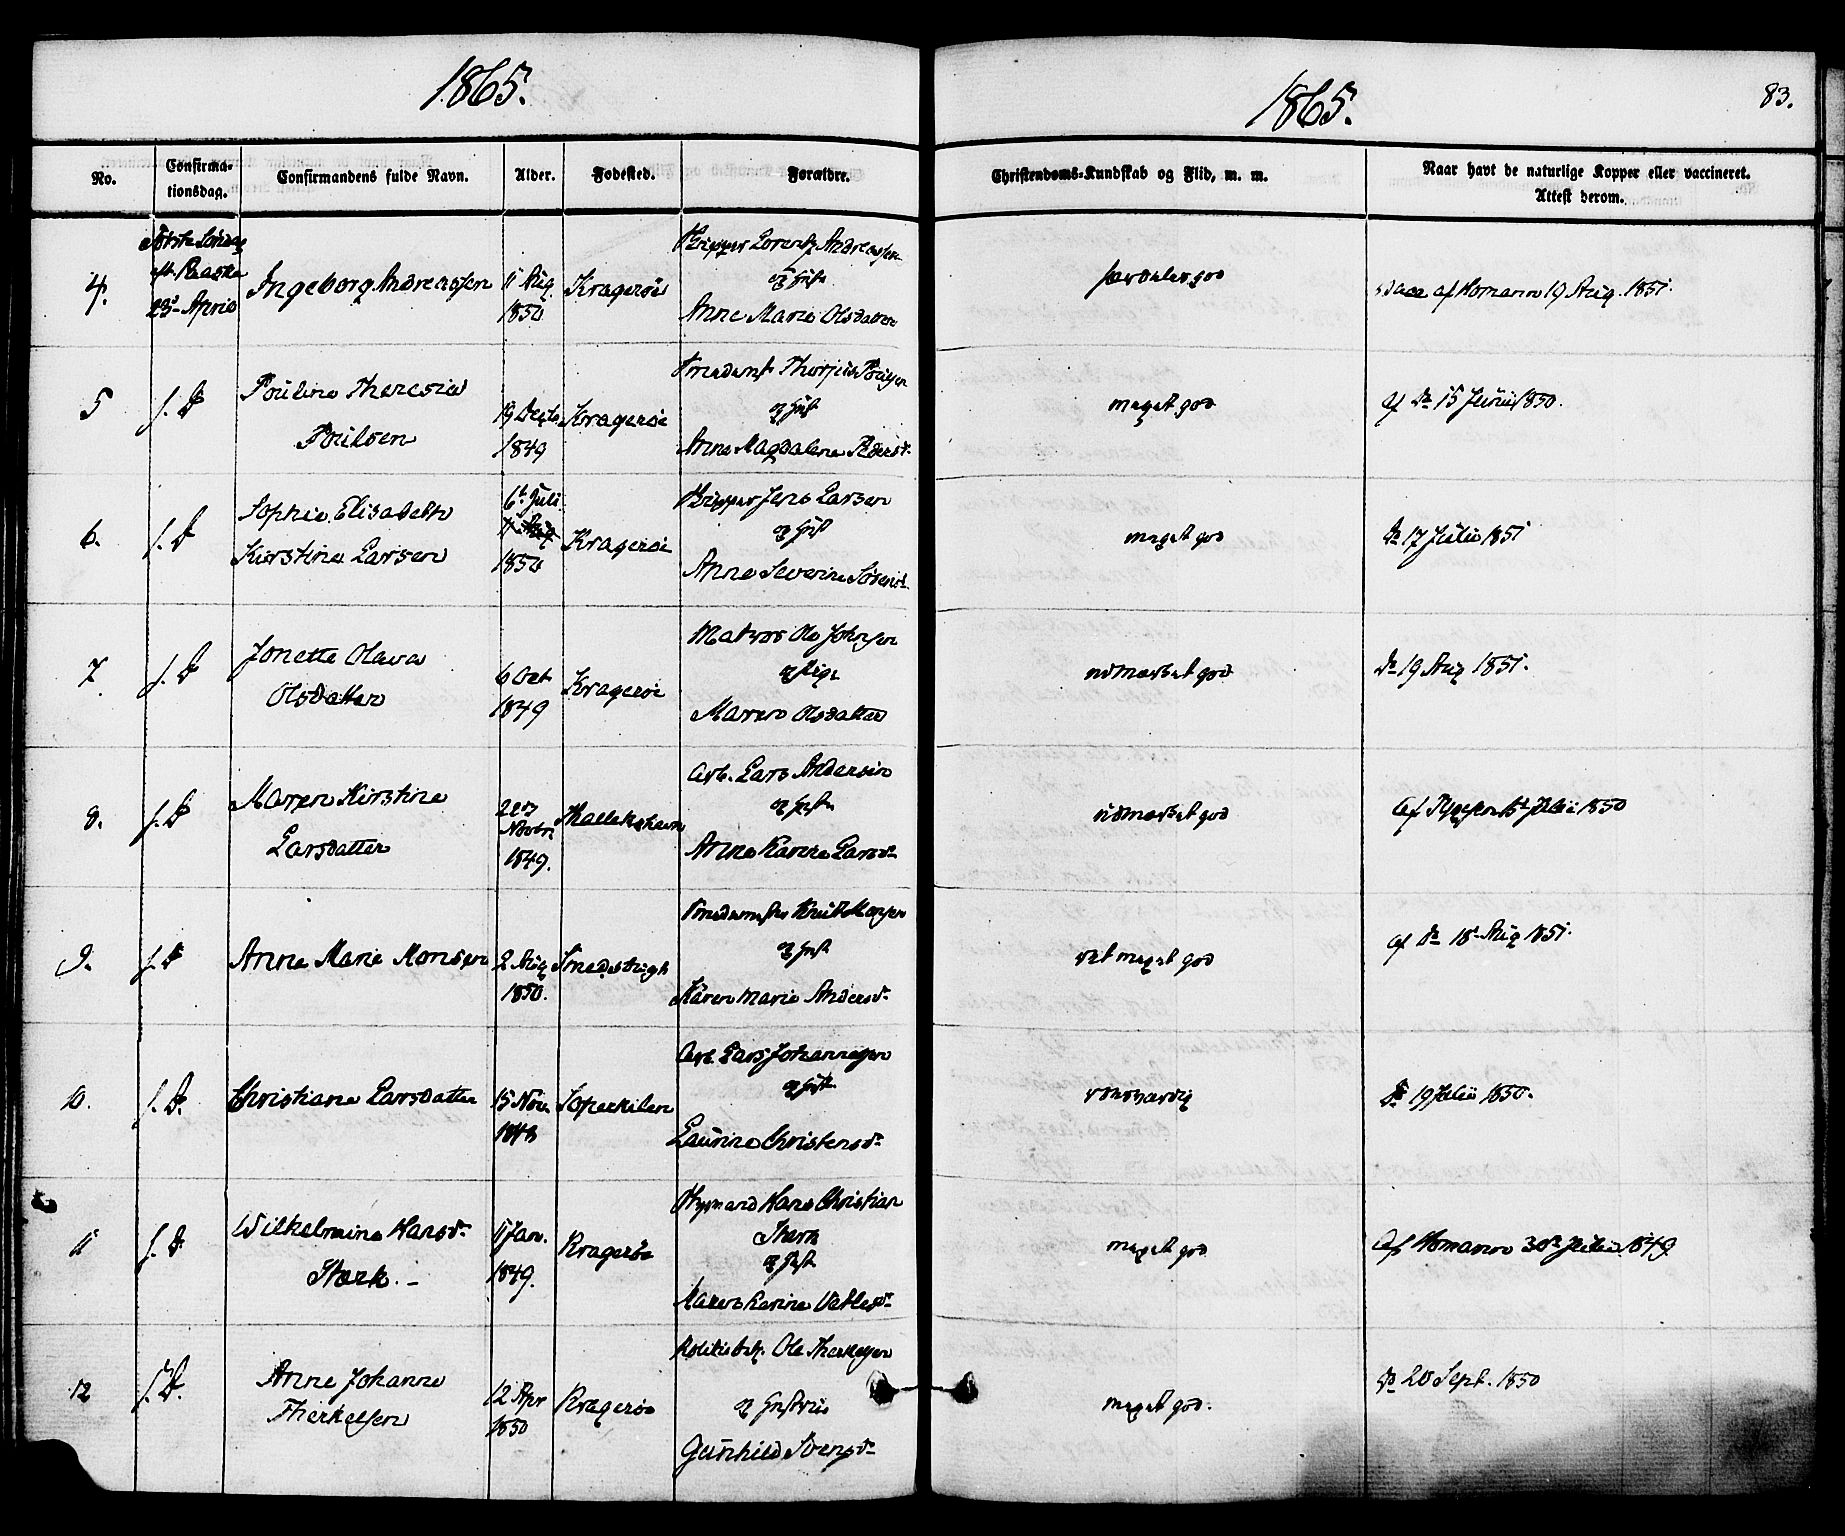 1865.
1865.
83.
No.
Confirma-
tionsdag.
Confirmandens fulde Navn.
Alder.
Fødested.
Forældre.
Christendoms-Kundskab og Flid, m. m.
Naar havt de naturlige Kopper eller vaccineret.
Attest derom.
4.
Første Søndag
eft. Paaske
23de April
Ingeborg Andreassen
11 Aug.
1850
Kragerøe
Skipper Lorentz Andreassen
og Hust
Anne Marie Olsdatter
særdeles god
Vacc af Homann 19 Aug. 1851.
5
s. D
Pouline Theresia
Poulsen
19 Decb.
1849
Kragerøe
Smedemst Thorjus Poulsen
og Hust
Anne Magdalene Pedersd.
meget god
af Do 15 Juni 1850.
6.
s. D
Sophie Elisabeth
Kirstine Larsen
6te Juli
1850
Kragerøe
Skipper Jens Larsen
og Hust
Anne Severine Sørensd.
meget god
Do 17 Juli 1851
7
s. D
Jonette Olava
Olsdatter
6 Oct
1849
Kragerøe
Matros Ole Johnsen
og Pige
Maren Olsdatter
udmærket god
Do 19 Aug 1851.
8.
s. D
Maren Kirstine
Larsdatter
22de
Novbr
1849.
Arb. Lars Andersen
og Hust
Anne Karine Larsd.
udmærket god
Af 15de Juli 1850
9.
s. D
Anne Marie Monsen
2 Aug
1850.
Smedemester Knut Monsen
og Hust
Karen Marie Andersd.
vel meget god
af Do 18 Aug 1851.
10.
s. D.
Christiane Larsdatter
15 Nov.
Arb. Lars Johannesen
og Hust
Laurine Christensd.
Do 19 Juli 1850.
11
s. D.
Wilhelmine Hansd.
Stærk. -
11 Jan.
1849.
Kragerøe
Styrmand Hans Christian
Stærk
og Hust
Maren Karine
meget god
Af Homann 30te Juli 1849
12
s. D.
Anne Johanne
Therkelsen
12 Apr
1850
Kragerøe
Politiebetj. Ole Therkelsen
og Hustrue
Gunhild Svensd.
meget god.
Do 20 Sept. 1850